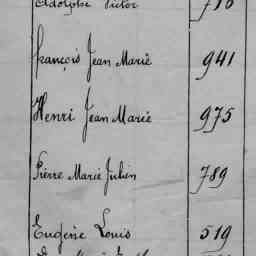 Adolphe Victor
François Jean Marie 941
Henri Jean Marie 975
Pierre Marie Julien 789
Eugène Louis 519